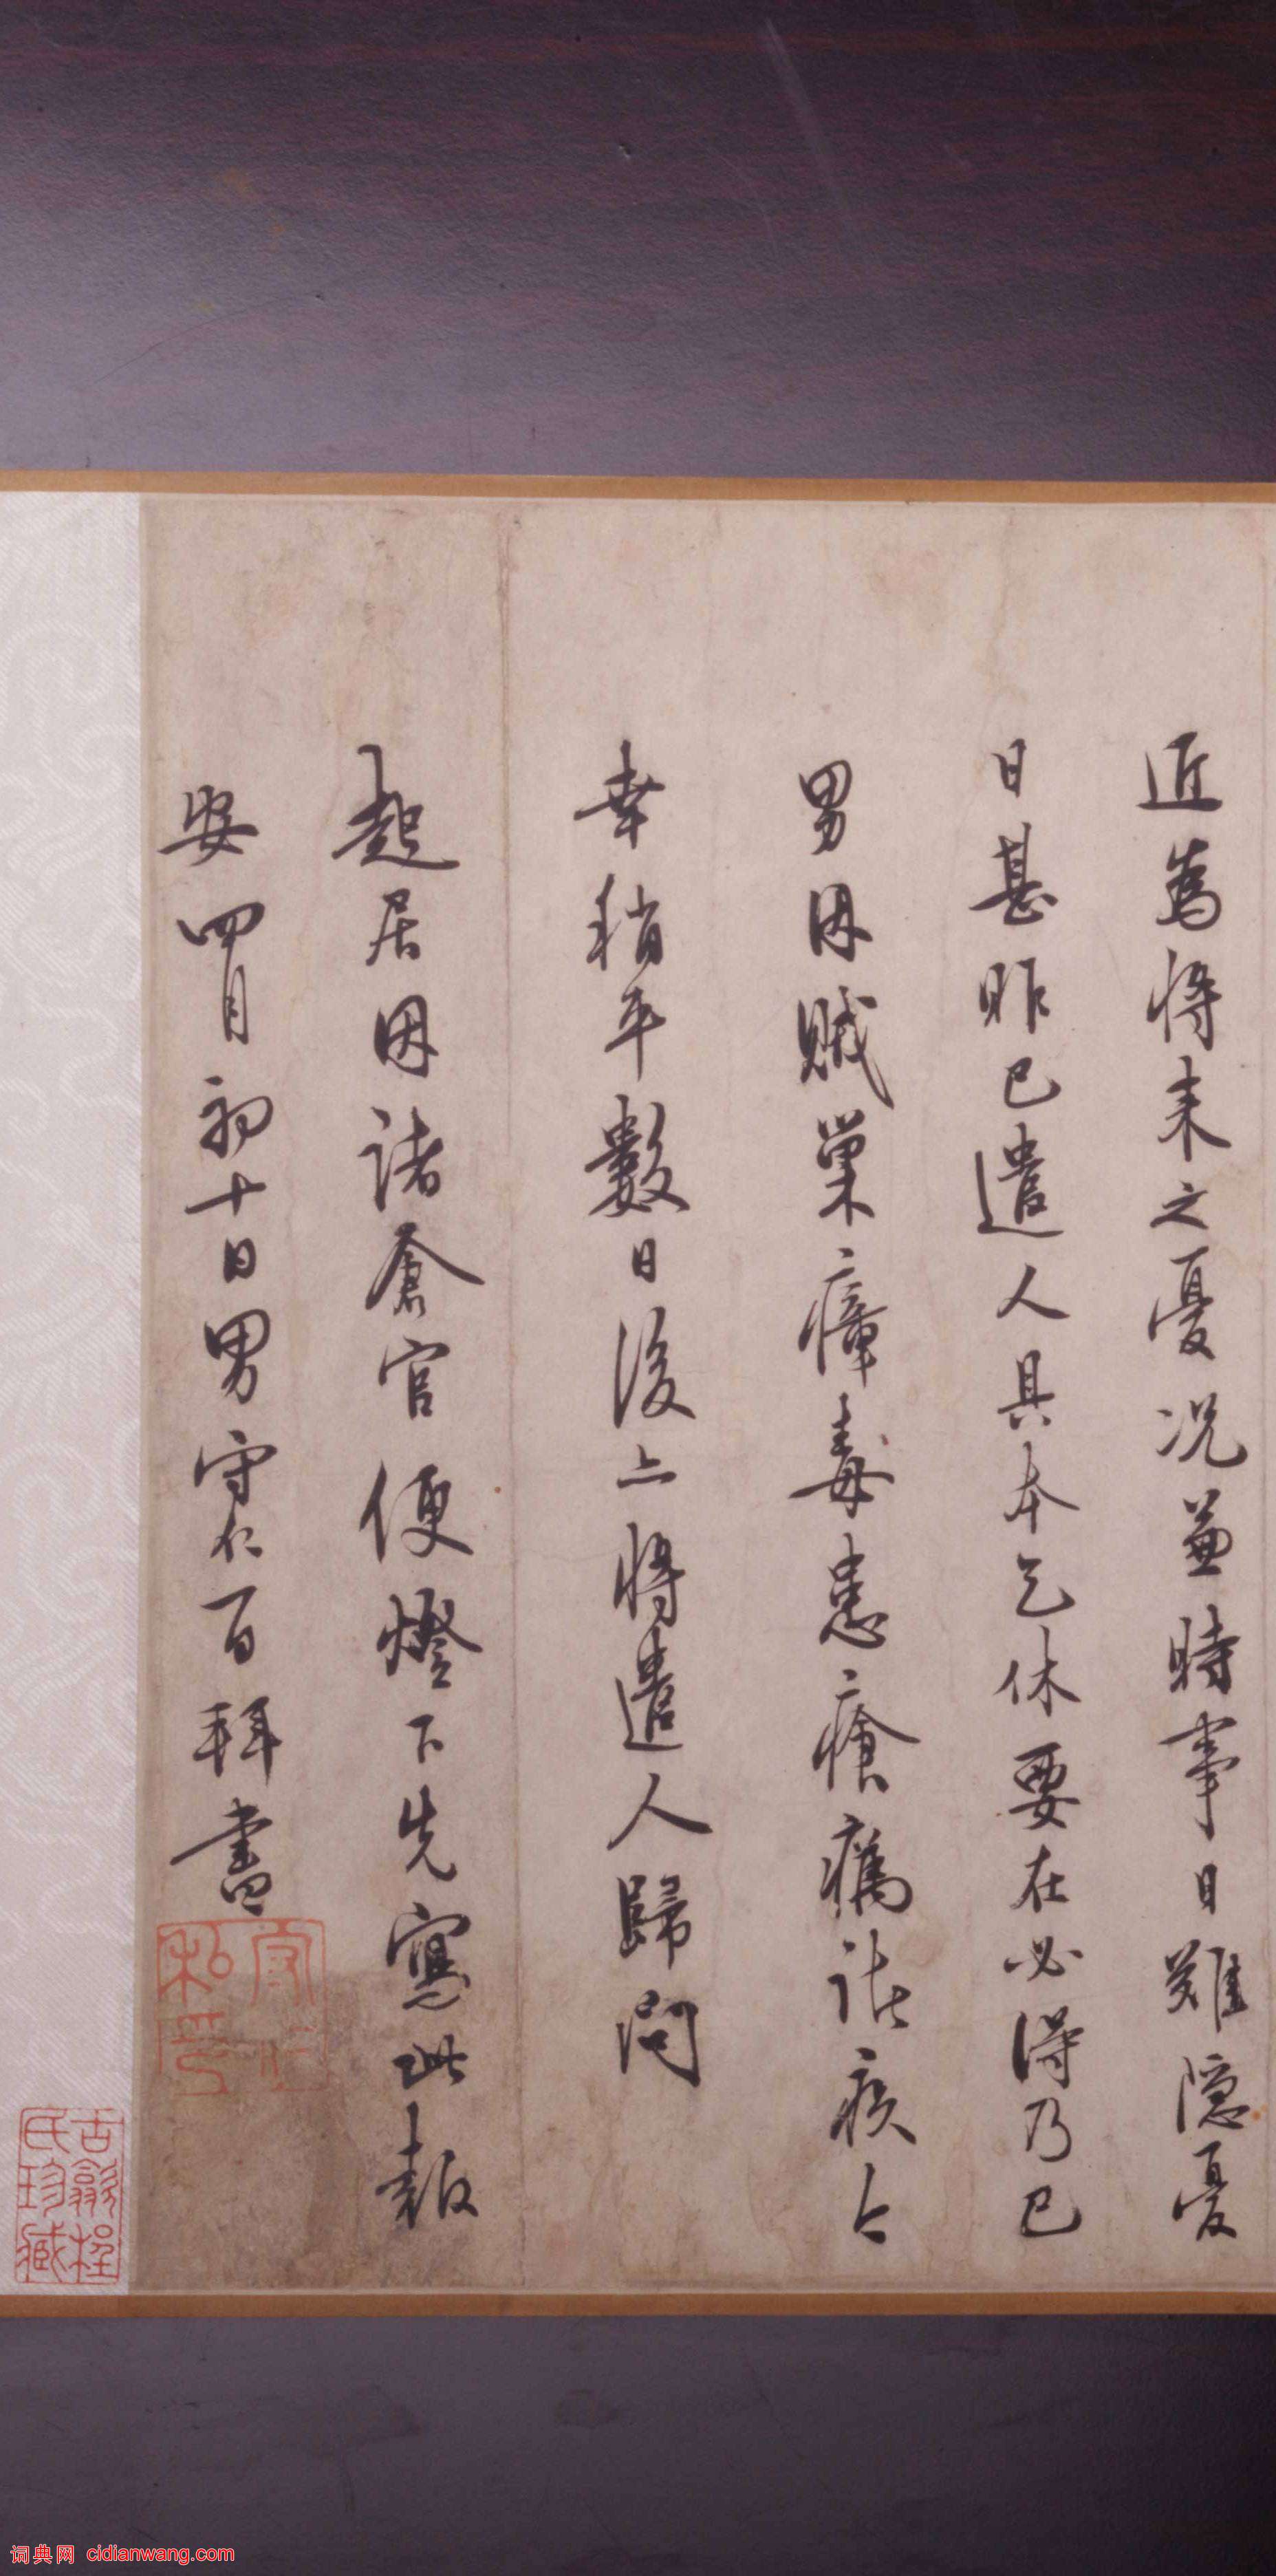 近為將來之憂況兼時事日難隱憂
日甚昨已遣人具本乞休要在必得乃已
男因賊巢瘴毒患瘡癘諸疾今
幸稍平數日後亦將遣人歸問
起居因諸倉官便燈下先寫此報
安四月初十日男守仁百拜書
守仁
私印
古歙程
氏珍藏
词典网 cidianwang.com